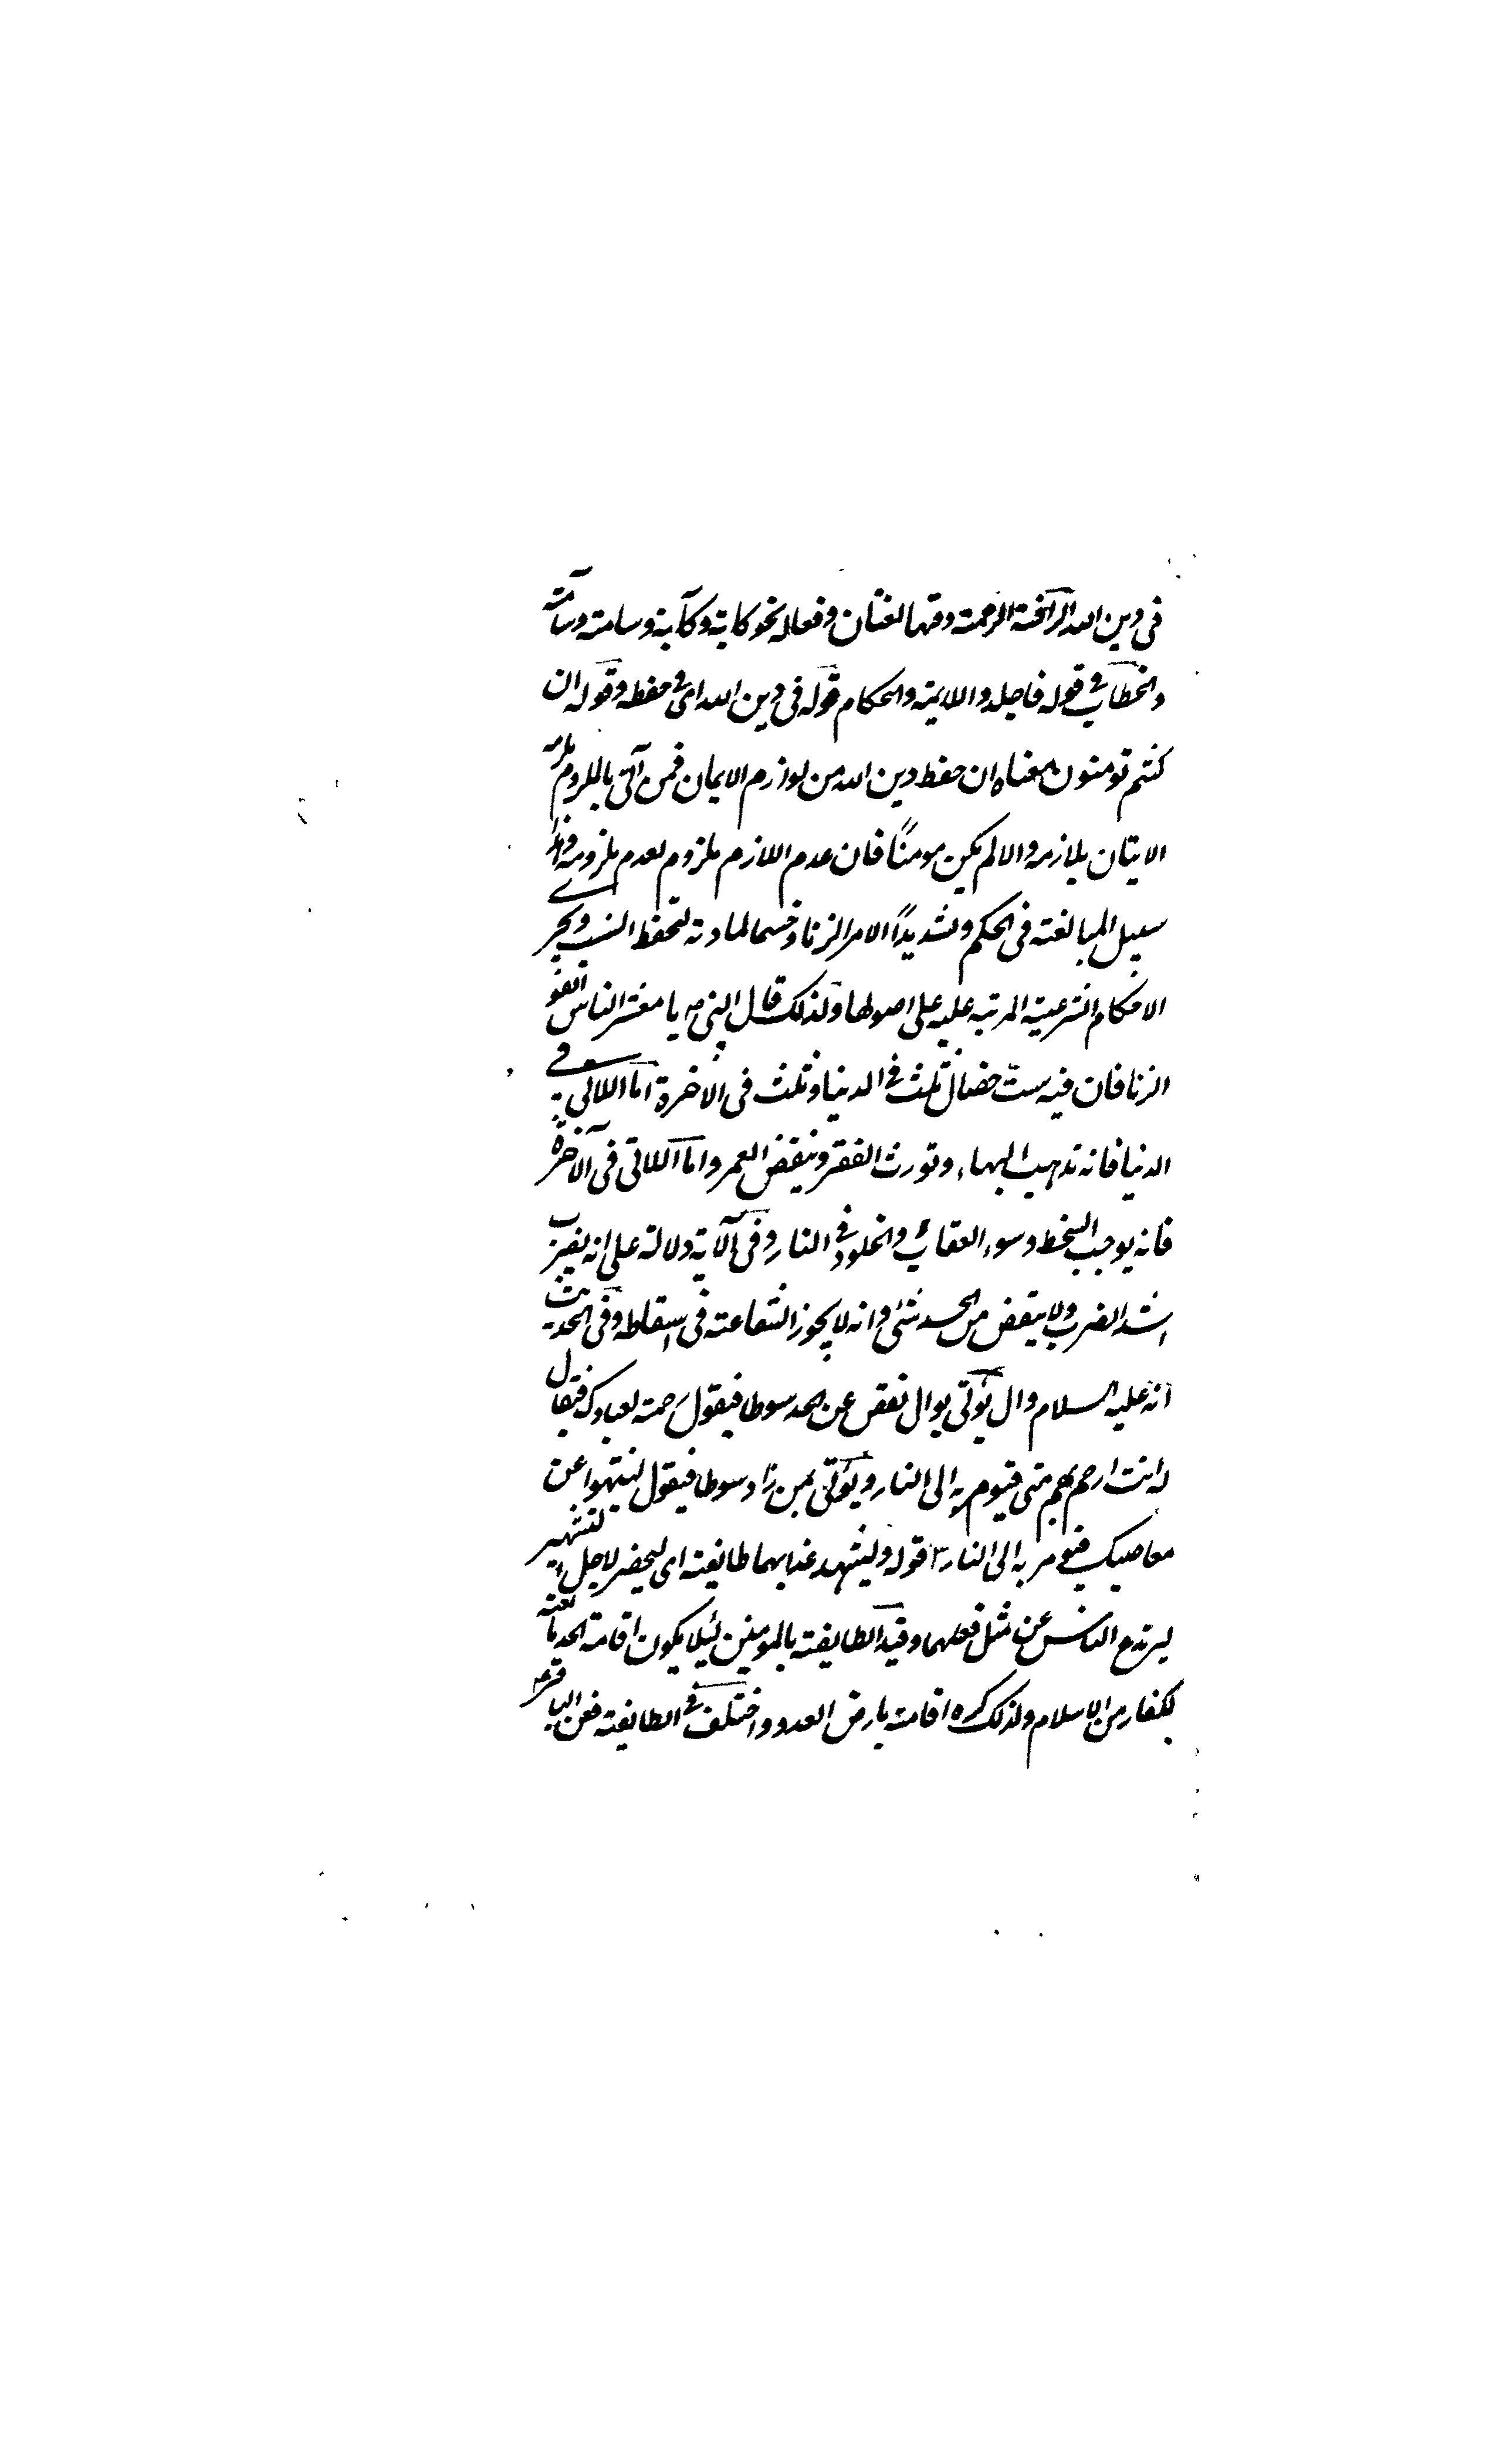 فى دين الله الرافة الرحمة وفيها لغتان وفعالة نحو كابة وكآبة وسامة وسآمة
والخطاب في قوله فاجلدوا للايمة والحكام قوله فى دين الله اى فى حفظه وقوله ان
كنتم تومنون معناه ان حفظ دين الله من لوازم الايمان فمن اتى بالملزوم يلزمه
الاتيان بلازمه والا لم يكن مومنًا فان عدم اللازم ملزوم لعدم ملزومه وهذا على
سبيل المبالغة فى الحكم وتشديدًا لامر الزنا وحسما لمادته لتحفظ النسب ويجر
الاحكام الشرعية المرتبه عليه على اصولها ولذلك قال النبى ص يا معشر الناس اتقو
الزنا فان فيه ست خصال ثلث فى الدنيا وثلث فى الاخرة اما اللاتي في
الدنيا فانه تذهب البهاء وتورث الفقر وينقض العمر واما اللاتى فى الآخرة
فانه يوجب السخط وسوء العقاب والخلود فى النار وفى الآية دلالة على انه يضرب
اشد الضرب ولا ينقض من الحد شئ وانه لا يجوز الشفاعة فى اسقاطه وفى الحديث
انه عليه السلام قال يؤتى بوال نقص عن الحد سوطا فيقول رحمة لعبادك فيقال
له انت ارحم بهم منى فيومر به الى النار ويؤتى بمن زاد سوطا فيقول لينتهوا عن
معاصيك فيومر به الى النار ٣ قوله وليشهد عذابهما طايفة اى ليحضر لاجل التشهير
ليرتدع الناس عن مثل فعلهما وقيد الطايفة بالمومنين ليلا يكون اقامة الحد مانعة
للكفار من الاسلام ولذلك كره اقامته بارض العدو واختلف فى الطايفة فعن الباقر ع